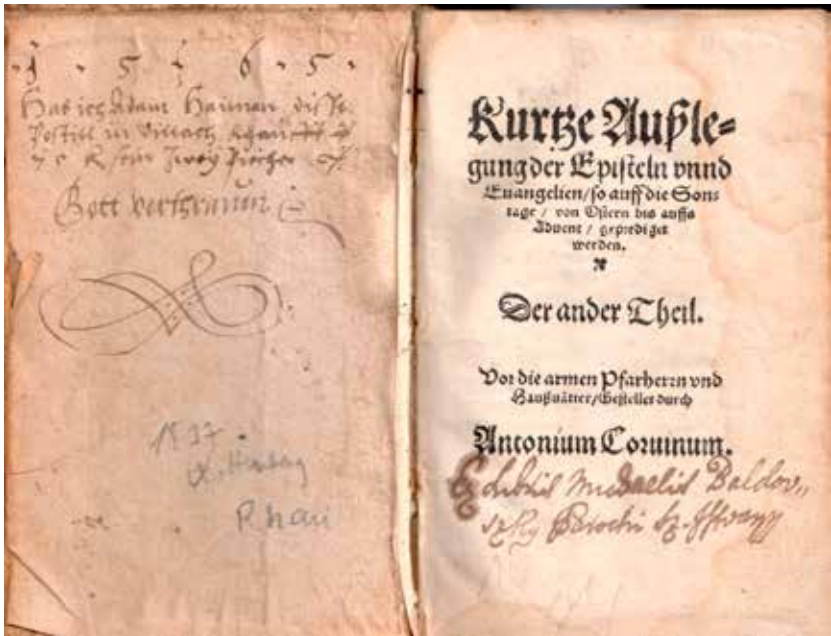 1 5 6 5
Hab ich Adam Haiman disse
Postill in Villach
Zwey
Gott vertrauen
1937
Kurtze Außle=
gung der Episteln vnnd
Euangelien/so auff die Son=
tage / von Ostern bis auffs
Aduent / geprediget
werden.
Der ander Theil.
Vor die armen Pfarherrn vnd
Haußuätter/Gestellet durch
Antonium Coruinum.
Ex Libris Michaelis Baldov„
szky Parochi Sz.